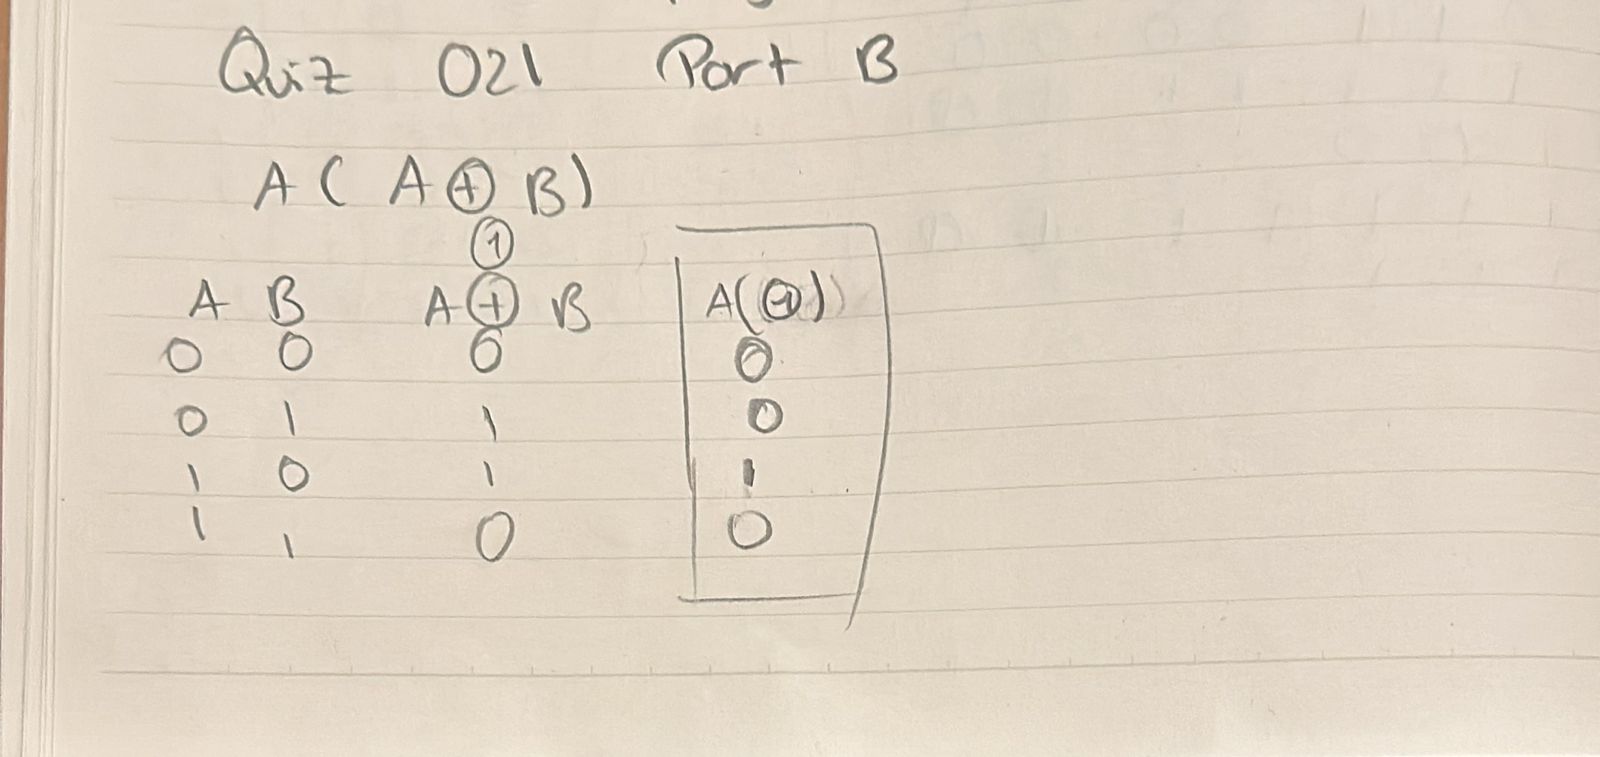 Quiz 021 Part B
A ( A ⊕ B )
①
A B A ⊕ B A(①)
0 0 0 0
0 1 1 0
1 0 1 1
1 1 0 0